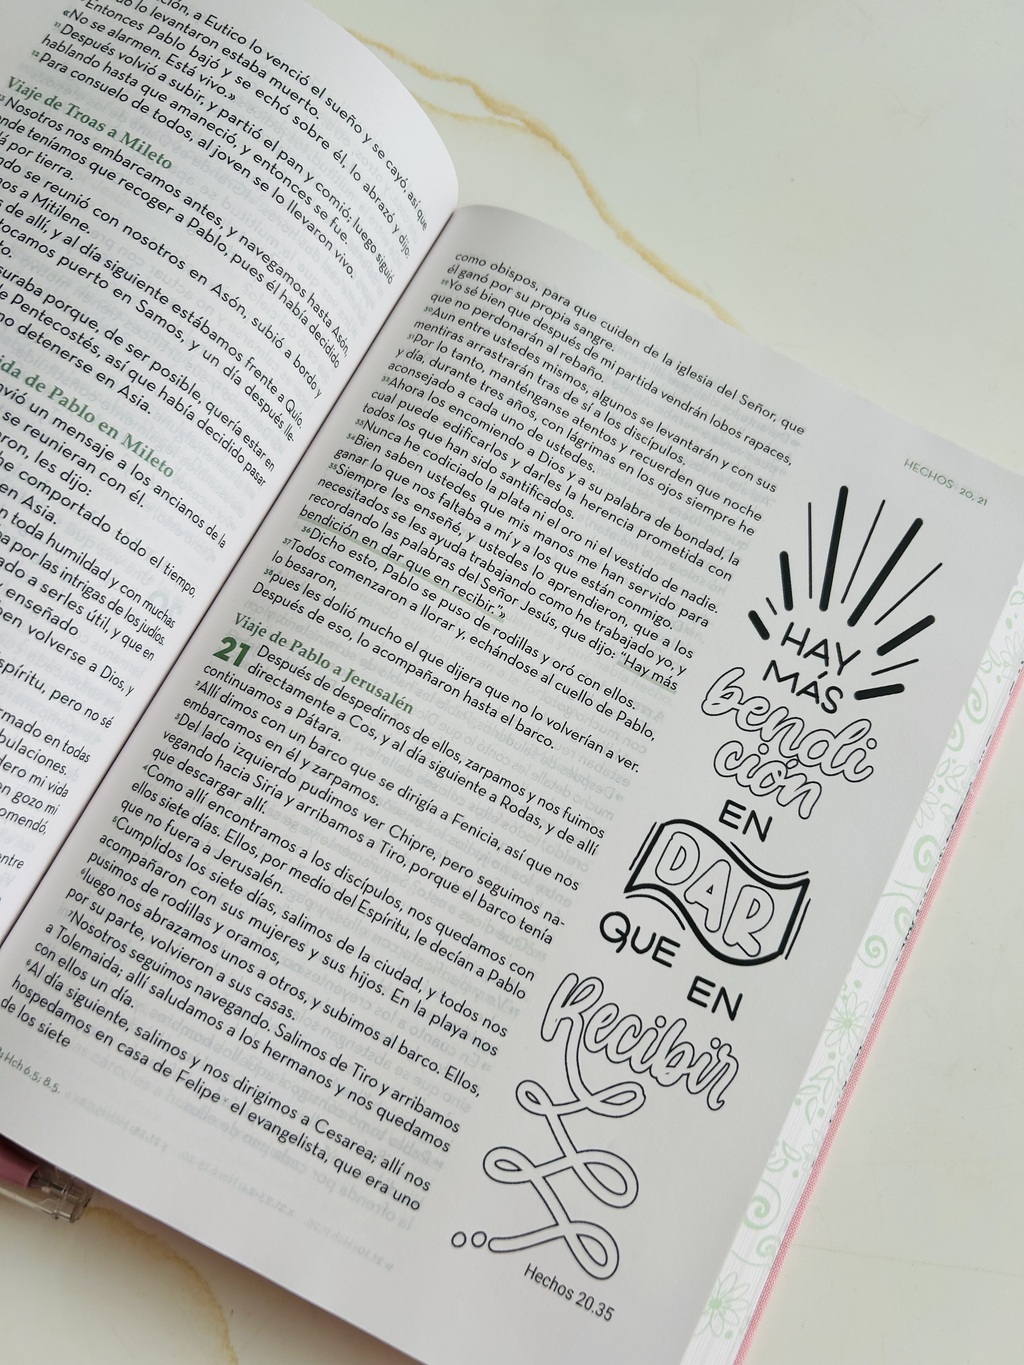 ción, a Eutico lo venció el sueño y se cayó, así que
lo levantaron estaba muerto.
Entonces Pablo bajó y se echó sobre él, lo abrazó y dijo:
«No se alarmen. Está vivo.»
Después volvió a subir, y partió el pan y comió; luego siguió
hablando hasta que amaneció, y entonces se fue.
Para consuelo de todos, al joven se lo llevaron vivo.
Viaje de Troas a Mileto
Nosotros nos embarcamos antes, y navegamos hasta Asón,
nde teníamos que recoger a Pablo, pues él había decidido
por tierra.
ndo se reunió con nosotros en Asón, subió a bordo, y
a Mitilene.
de allí, y al día siguiente estábamos frente a Quío.
tocamos puerto en Samos, y un día después lle-
to.
suraba porque, de ser posible, quería estar en
Pentecostés, así que había decidido pasar
no detenerse en Asia.
ida de Pablo en Mileto
nvió un mensaje a los ancianos de la
se reunieran con él.
ron, les dijo:
he comportado todo el tiempo,
en Asia.
n toda humildad y con muchas
por las intrigas de los judíos.
ado a serles útil, y que en
y enseñado
en volverse a Dios, y
spíritu, pero no sé
rmado en todas
bulaciones.
ero mi vida
n gozo mi
omendó,
entre
Hch 6.5; 8.5.
HECHOS 20, 21
como obispos, para que cuiden de la iglesia del Señor, que
él ganó por su propia sangre.
29Yo sé bien que después de mi partida vendrán lobos rapaces,
que no perdonarán al rebaño.
30Aun entre ustedes mismos, algunos se levantarán y con sus
mentiras arrastrarán tras de sí a los discípulos.
31Por lo tanto, manténganse atentos y recuerden que noche
y día, durante tres años, con lágrimas en los ojos siempre he
aconsejado a cada uno de ustedes.
32Ahora los encomiendo a Dios y a su palabra de bondad, la
cual puede edificarlos y darles la herencia prometida con
todos los que han sido santificados.
33Nunca he codiciado la plata ni el oro ni el vestido de nadie.
34Bien saben ustedes que mis manos me han servido para
ganar lo que nos faltaba a mí y a los que están conmigo.
35Siempre les enseñé, y ustedes lo aprendieron, que a los
necesitados se les ayuda trabajando como he trabajado yo, y
recordando las palabras del Señor Jesús, que dijo: "Hay más
bendición en dar que en recibir."»
36Dicho esto, Pablo se puso de rodillas y oró con ellos.
37Todos comenzaron a llorar y, echándose al cuello de Pablo,
lo besaron,
38pues les dolió mucho el que dijera que no lo volverían a ver.
Después de eso, lo acompañaron hasta el barco.
Viaje de Pablo a Jerusalén
21 Después de despedirnos de ellos, zarpamos y nos fuimos
directamente a Cos, y al día siguiente a Rodas, y de allí
continuamos a Pátara.
2Allí dimos con un barco que se dirigía a Fenicia, así que nos
embarcamos en él y zarpamos.
3Del lado izquierdo pudimos ver Chipre, pero seguimos na-
vegando hacia Siria y arribamos a Tiro, porque el barco tenía
que descargar allí.
4Como allí encontramos a los discípulos, nos quedamos con
ellos siete días. Ellos, por medio del Espíritu, le decían a Pablo
que no fuera a Jerusalén.
5Cumplidos los siete días, salimos de la ciudad, y todos nos
acompañaron con sus mujeres y sus hijos. En la playa nos
pusimos de rodillas y oramos,
6luego nos abrazamos unos a otros, y subimos al barco. Ellos,
por su parte, volvieron a sus casas.
7Nosotros seguimos navegando. Salimos de Tiro y arribamos
a Tolemaida; allí saludamos a los hermanos y nos quedamos
con ellos un día.
8Al día siguiente, salimos y nos dirigimos a Cesarea; allí nos
hospedamos en casa de Felipe el evangelista, que era uno
de los siete
HAY
MÁS
bendi
ción
EN
DAR
QUE EN
Recibir
Hechos 20.35